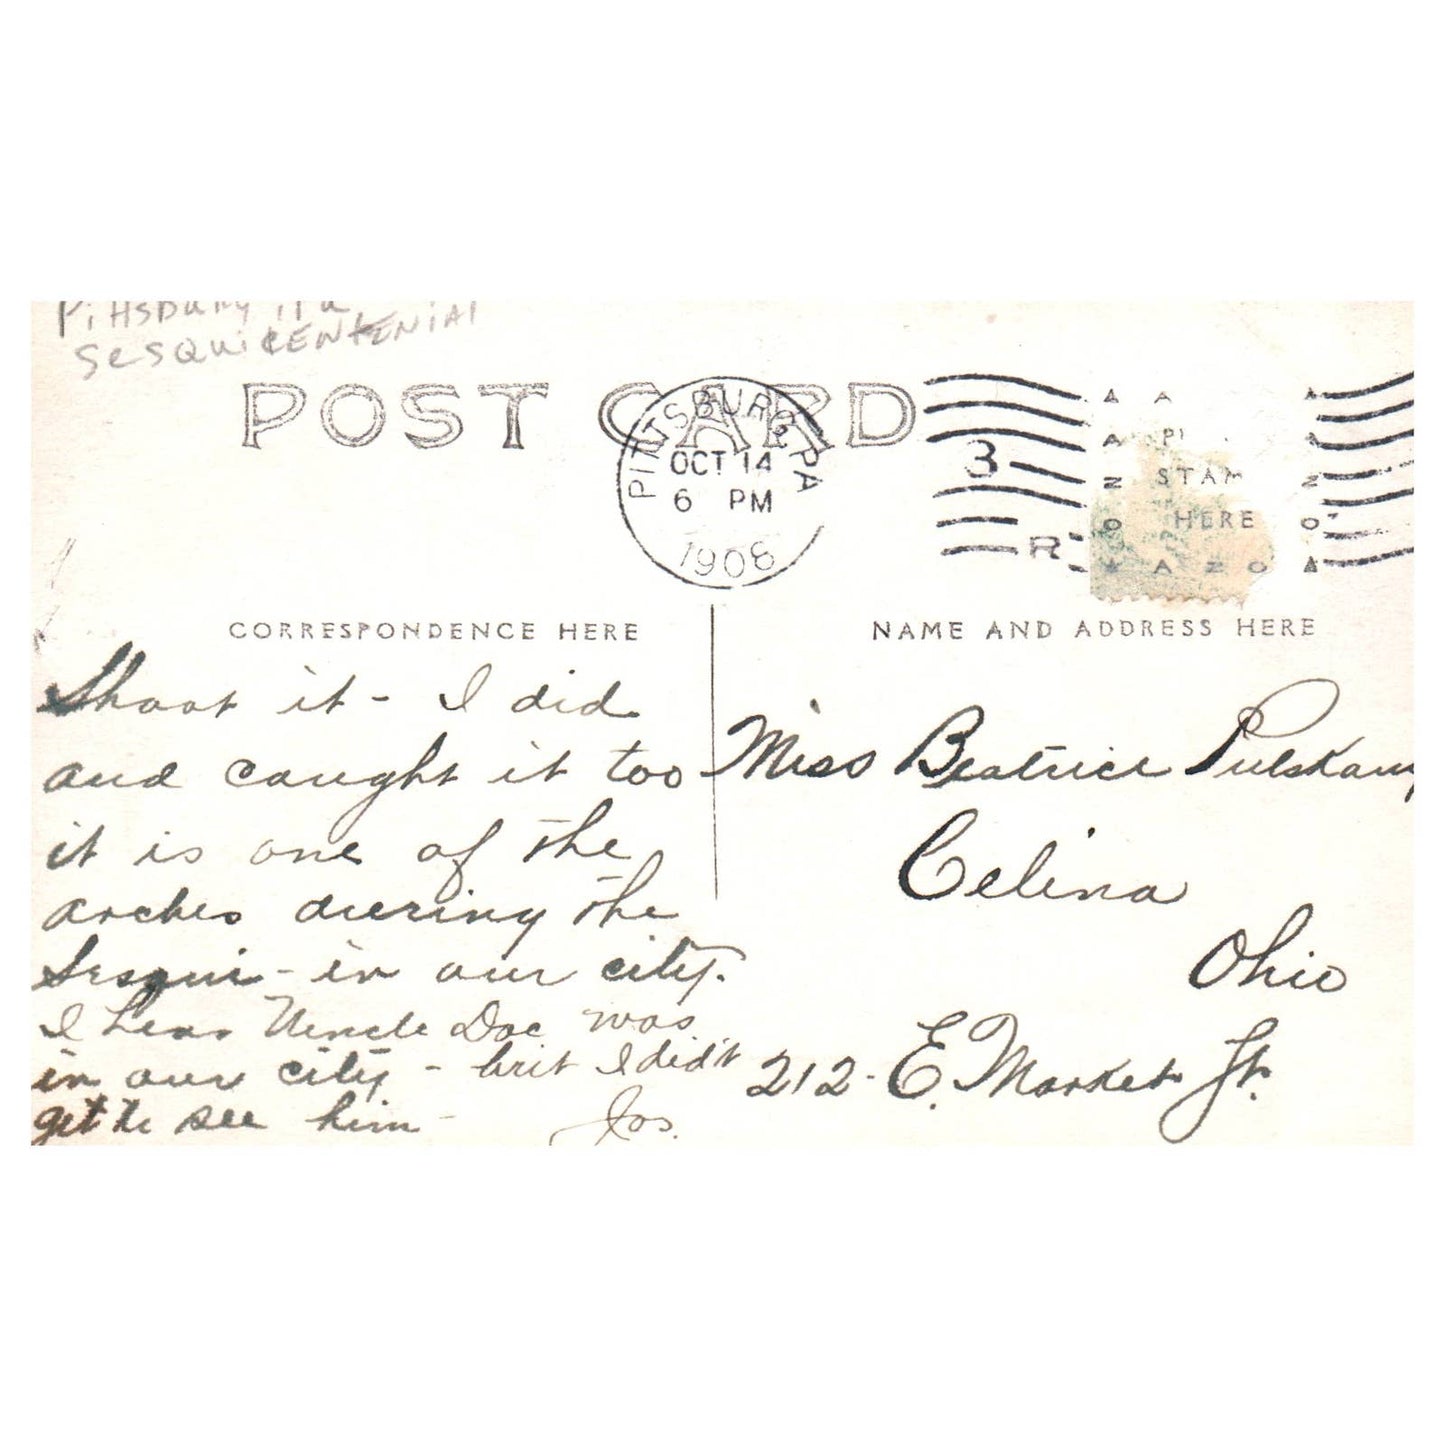 Pittsburg Pa
SesquiCENtENiAl
POST CARD
PITTSBURG, PA
OCT 14
6 PM
1908
3
R
STAM
HERE
AZO
CORRESPONDENCE HERE
NAME AND ADDRESS HERE
Shoot it - I did
and caught it too
it is one of the
arches during the
Sesqui - in our city.
I hear Uncle Doc was
in our city - but I did't
get to see him -
Jos.
Miss Beatrice Pulskamp
Celina
Ohio
212 - E. Market St.